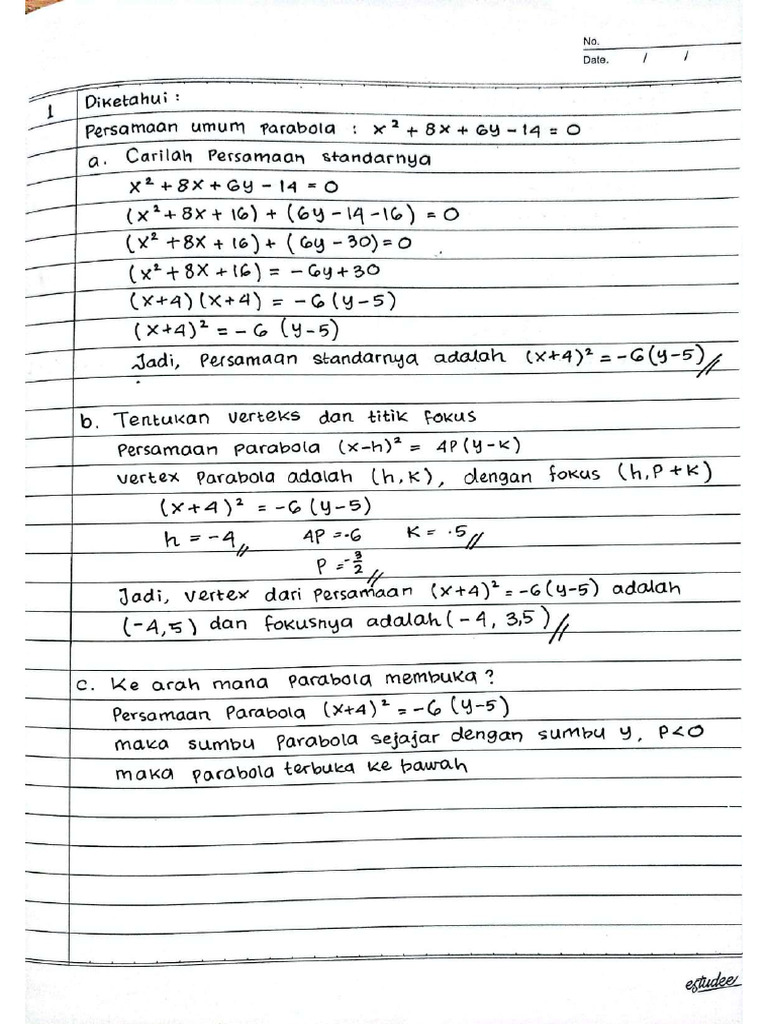 No.
Date. / /
1 Diketahui :
Persamaan umum Parabola : x² + 8x + 6y - 14 = 0
a. Carilah Persamaan standarnya
x² + 8x + 6y - 14 = 0
(x² + 8x + 16) + (6y - 14 - 16) = 0
(x² + 8x + 16) + (6y - 30) = 0
(x² + 8x + 16) = -6y + 30
(x+4) (x+4) = -6 (y-5)
(x+4)² = -6 (y-5)
Jadi, Persamaan standarnya adalah (x+4)² = -6(y-5)//
b. Tentukan verteks dan titik fokus
Persamaan parabola (x-h)² = 4P(y-k)
vertex Parabola adalah (h,k), dengan fokus (h, P+k)
(x+4)² = -6 (y-5)
h = -4// 4P = -6 k = .5//
P = -3/2//
Jadi, vertex dari Persamaan (x+4)² = -6(y-5) adalah
(-4,5) dan fokusnya adalah (-4, 3,5)//
c. Ke arah mana Parabola membuka?
Persamaan Parabola (x+4)² = -6 (y-5)
maka sumbu Parabola sejajar dengan sumbu y, P<0
maka parabola terbuka ke bawah
estudee